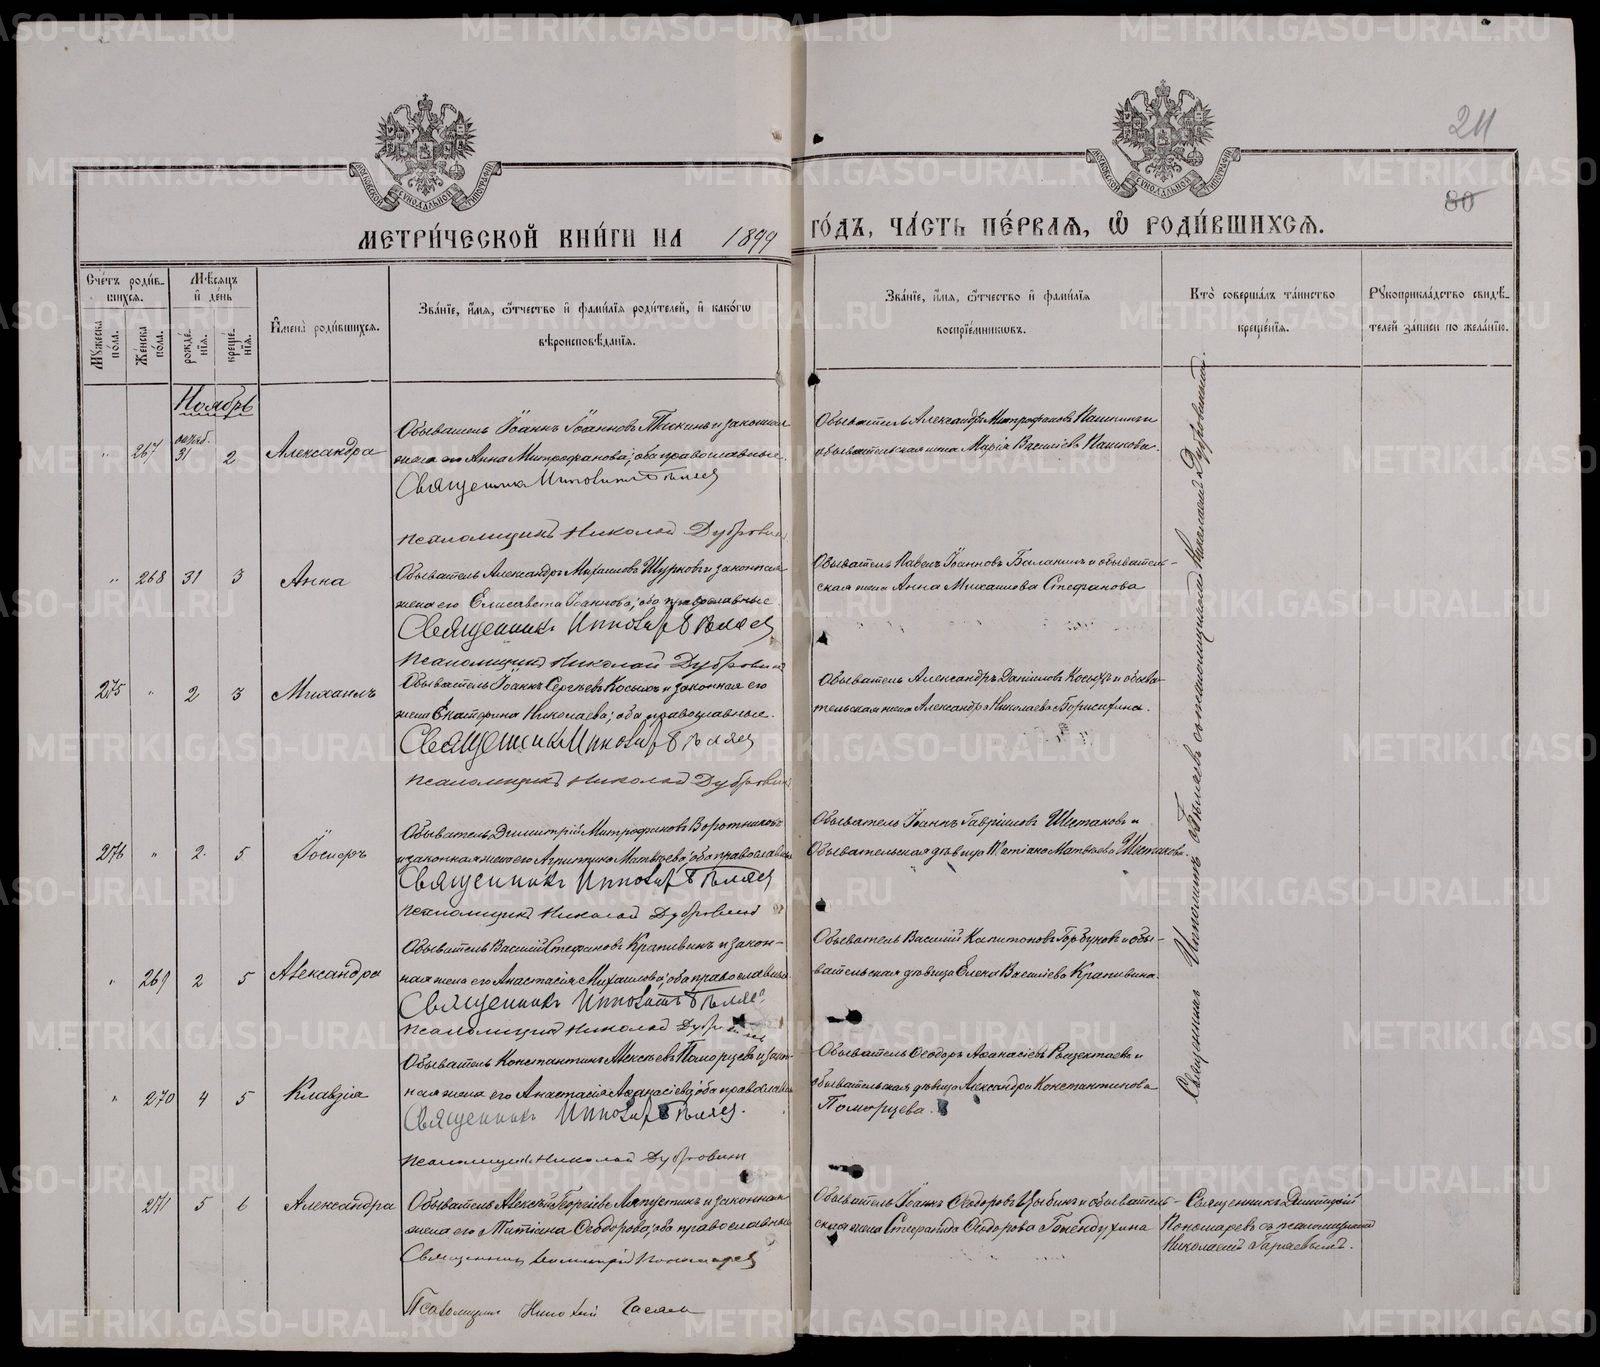 211
80
МЕТРИ́ЧЕСКОЙ КНИ́ГИ НА 1899 ГО́ДЪ, ЧА́СТЬ ПЕ́РВАЯ, Ѡ РОДИ́ВШИХСЯ.
Сче́тъ роди́в-
шихся.
Му́жеска
по́ла.
Же́нска
по́ла.
Мѣ́сяцъ
и де́нь
рожде́-
нїя.
креще́-
нїя.
И҆мена̀ роди́вшихся.
Зва́нїе, и҆́мя, ѻ҆́тчество и҆ фами́лїя роди́телей, и҆ како́гѡ
вѣроисповѣ́данїя.
Зва́нїе, и҆́мя, ѻ҆́тчество и҆ фами́лїя
воспрїе́мниковъ.
Кто̀ соверша́лъ та́инство
креще́нїя.
Рꙋкоприкла́дство свидѣ́-
телей за́писи по жела́нїю.
Ноябрь
" 267 октяб. 31 2 Александра
Обыватель Іоаннъ Іоанновъ Тикинъ и законная
жена его Анна Митрофанова; оба православные.
Священникъ Ипполитъ Бѣляев
псаломщикъ Николай Дубровин
Обыватель Александръ Митрофановъ Пашкинъ и
обывательская жена Марія Васильева Пашкова.
" 268 31 3 Анна
Обыватель Александръ Михаиловъ Шурковъ и законная
жена его Елисавета Іоаннова; оба православные
Священникъ Ипполитъ Бѣляев
псаломщикъ Николай Дубровин
Обыватель Павелъ Іоанновъ Баланинъ и обыватель-
ская жена Анна Михаилова Стефанова
275 " 2 3 Михаилъ
Обыватель Іоаннъ Сергѣевъ Косыхъ и законная его
жена Екатерина Николаева; оба православные.
Священникъ Ипполитъ Бѣляев
псаломщикъ Николай Дубровин
Обыватель Александръ Даніиловъ Косыхъ и обыва-
тельская жена Александра Николаева Борисихина.
276 " 2. 5 Іосифъ
Обыватель Димитрій Митрофановъ Воротниковъ
и законная жена его Агриппина Матвѣева; оба православные
Священникъ Ипполитъ Бѣляев
псаломщикъ Николай Дубровин
Обыватель Іоаннъ Гавріиловъ Шестаковъ и
Обывательская дѣвица Матвѣева Шестакова.
" 269 2 5 Александра
Обыватель Василій Стефановъ Крапивинъ и закон-
ная жена его Анастасія Михаилова; оба православные
Священникъ Ипполитъ Бѣляев
псаломщикъ Николай Дубровин
Обыватель Василій Капитоновъ Горбуновъ и обы-
вательская дѣвица Елена Васильева Крапивина.
" 270 4 5 Клавдіа
Обыватель Константинъ Алексѣевъ Поморцевъ и закон-
ная жена его Анастасія Аѳанасіева; оба православные
Священникъ Ипполитъ Бѣляев.
псаломщикъ Николай Дубровин
Обыватель Ѳеодоръ Аѳанасіевъ и
обывательская дѣвица Александра Константинова
Поморцева.
Священникъ Ипполитъ Бѣляевъ съ псаломщикомъ Николаемъ Дубровинымъ.
271 5 6 Александра
Обыватель Алексѣй Георгіевъ Лапустинъ и законная
жена его Татіана Ѳеодорова; оба православные
Священникъ Димитрій Пономарев
Псаломщикъ Николай Гараев
Обыватель Іоаннъ Ѳеодоровъ Цыбинъ и обыватель-
ская жена Стефанида Ѳеодорова
Священникъ Димитрій
Пономаревъ съ псаломщикомъ
Николаемъ Гараевымъ.
METRIKI.GASO-URAL.RU